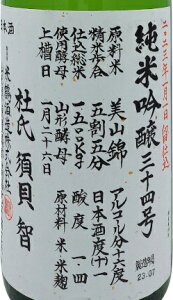 純米吟醸三十四号
原料米 美山錦
精米歩合 五割五分
仕込総米 一五〇〇kg
使用酵母 山形酵母
上槽日 一月二十六日
アルコール分 十六度
日本酒度 十一
酸度 一・四
原材料 米 米麹
米鶴酒造株式会社
杜氏 須貝智
製造年月
23.07